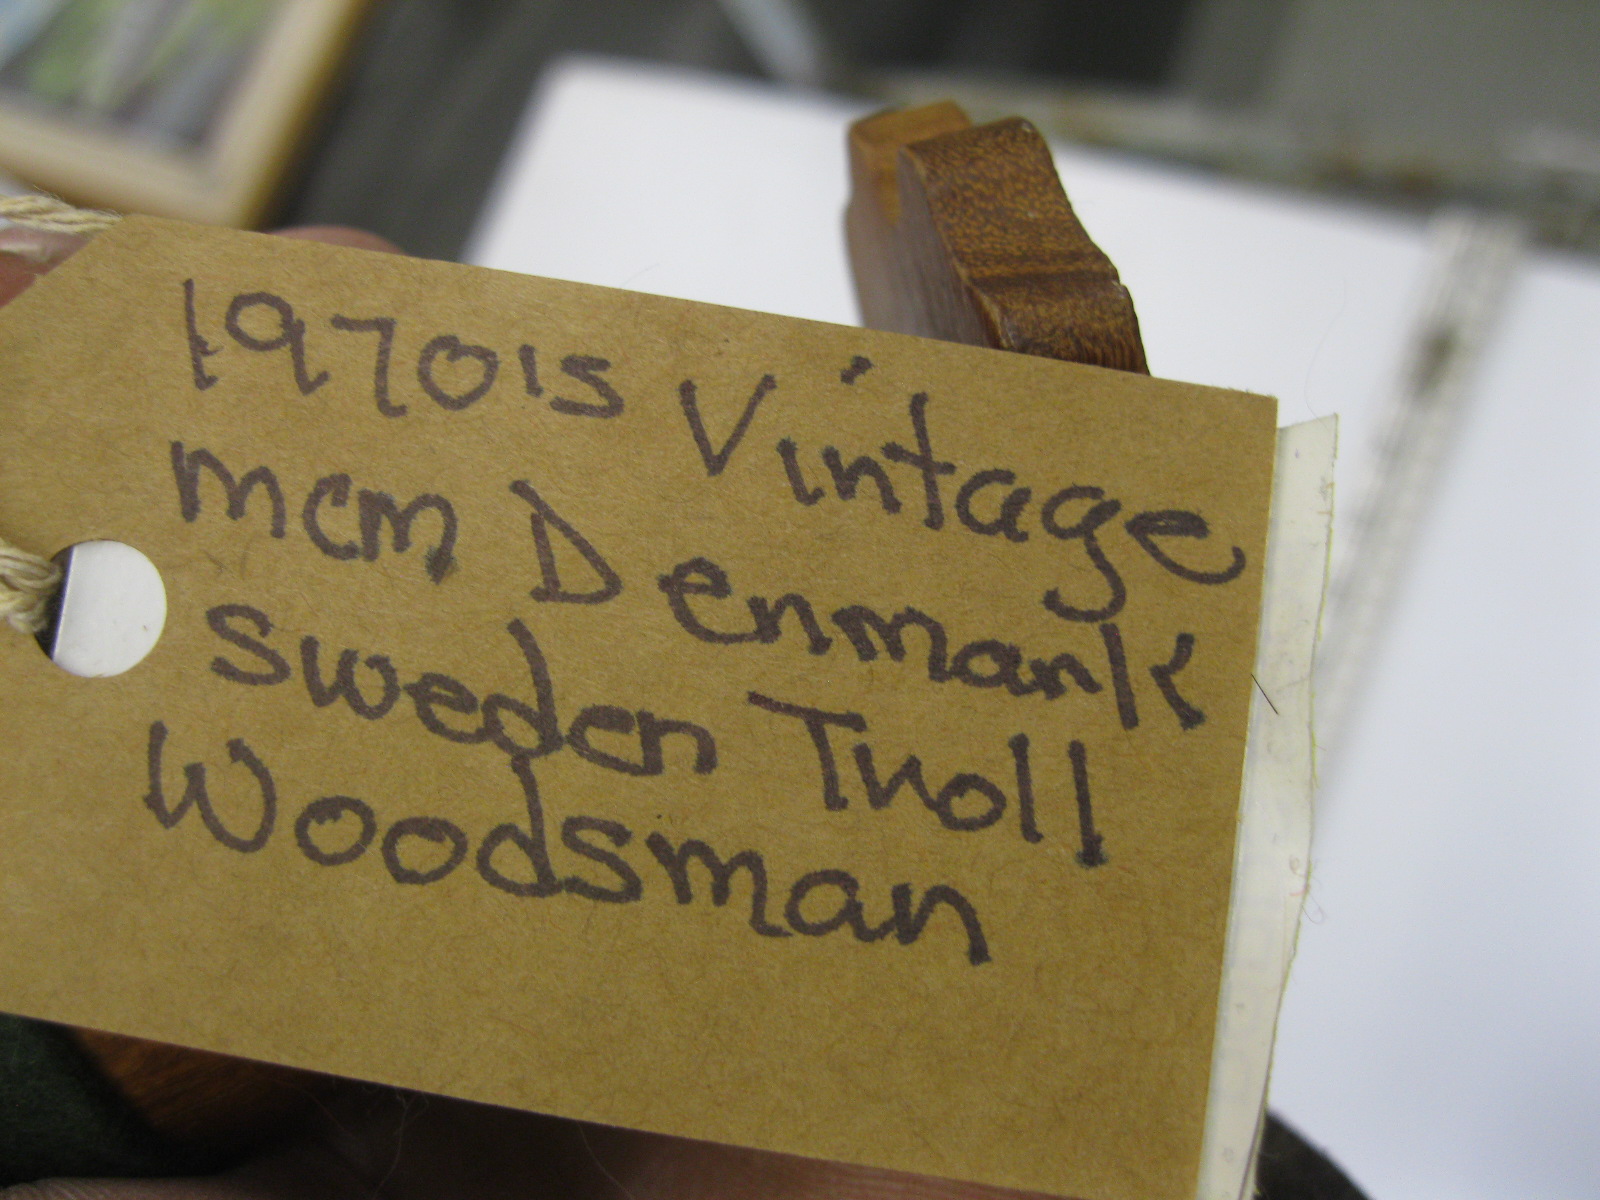 1970's Vintage
mcm Denmark
sweden Troll
Woodsman